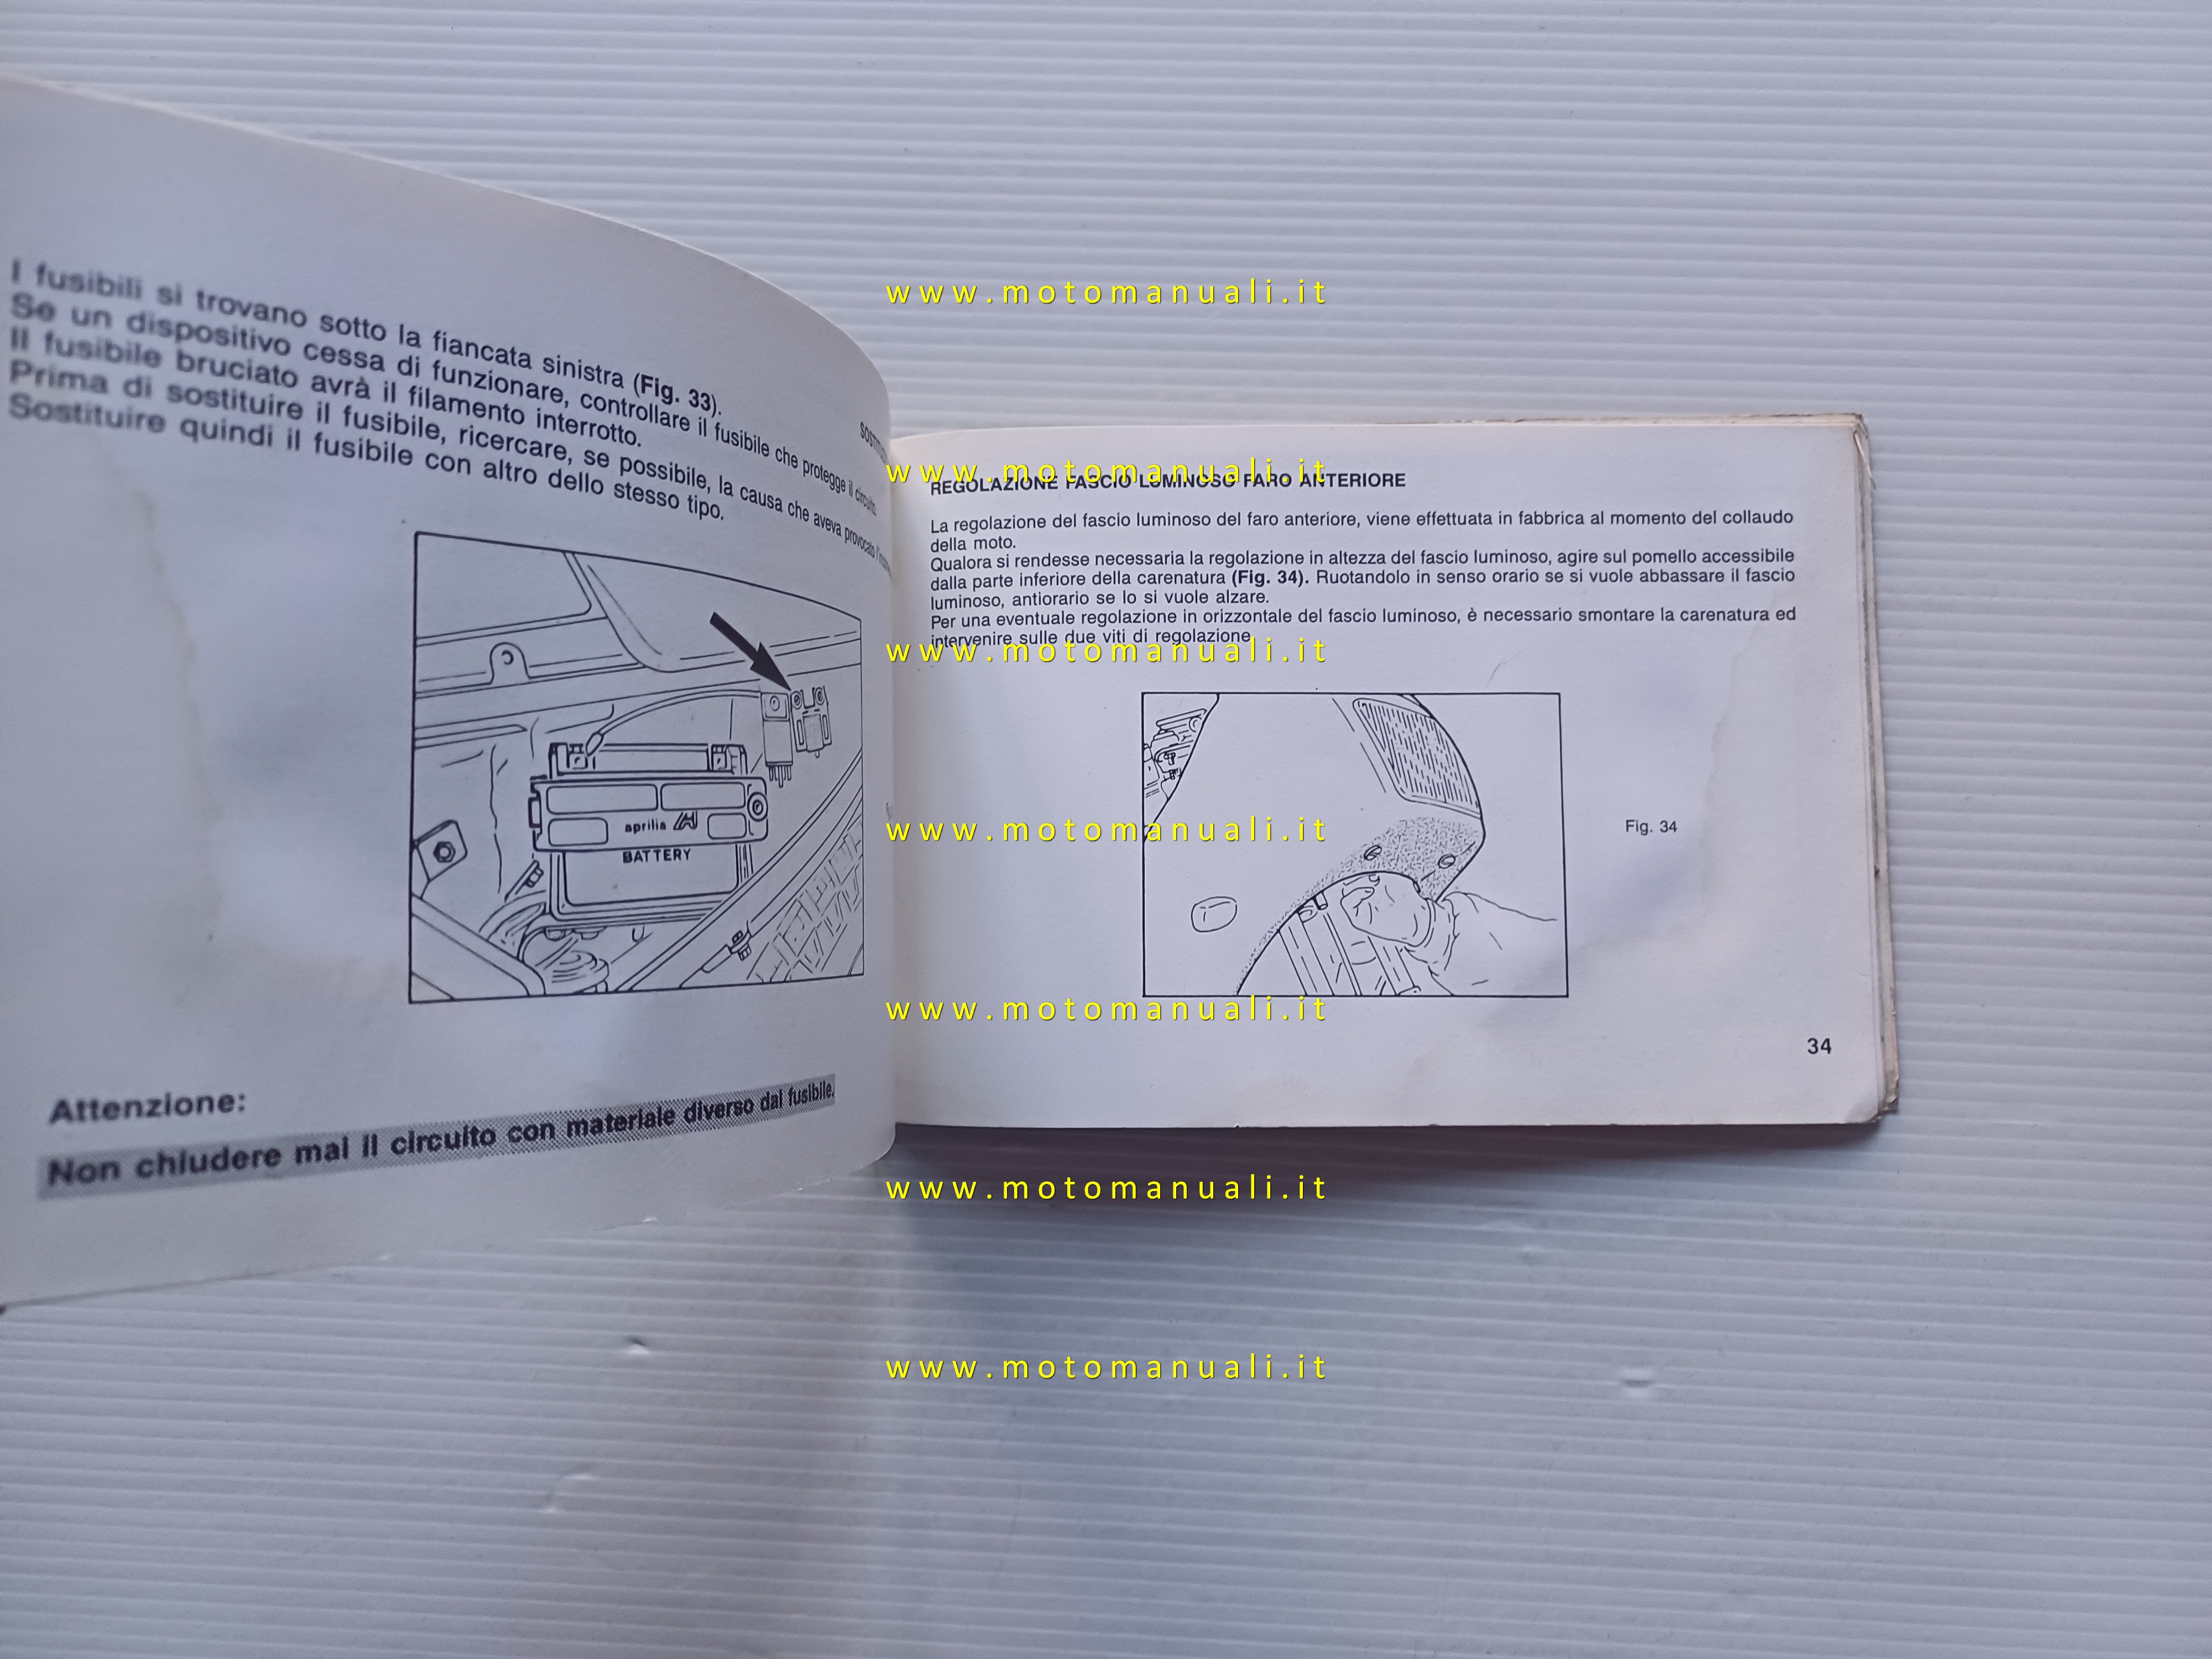 I fusibili si trovano sotto la fiancata sinistra (Fig. 33).
Se un dispositivo cessa di funzionare, controllare il fusibile che protegge il circuito.
Il fusibile bruciato avrà il filamento interrotto.
Prima di sostituire il fusibile, ricercare, se possibile, la causa che aveva provocato
Sostituire quindi il fusibile con altro dello stesso tipo.
aprilia
BATTERY
Attenzione:
Non chiudere mai il circuito con materiale diverso dal fusibile.
www.motomanuali.it
www.motomanuali.it
REGOLAZIONE FASCIO LUMINOSO FARO ANTERIORE
La regolazione del fascio luminoso del faro anteriore, viene effettuata in fabbrica al momento del collaudo
della moto.
Qualora si rendesse necessaria la regolazione in altezza del fascio luminoso, agire sul pomello accessibile
dalla parte inferiore della carenatura (Fig. 34). Ruotandolo in senso orario se si vuole abbassare il fascio
luminoso, antiorario se lo si vuole alzare.
Per una eventuale regolazione in orizzontale del fascio luminoso, è necessario smontare la carenatura ed
intervenire sulle due viti di regolazione
www.motomanuali.it
www.motomanuali.it
Fig. 34
www.motomanuali.it
34
www.motomanuali.it
www.motomanuali.it